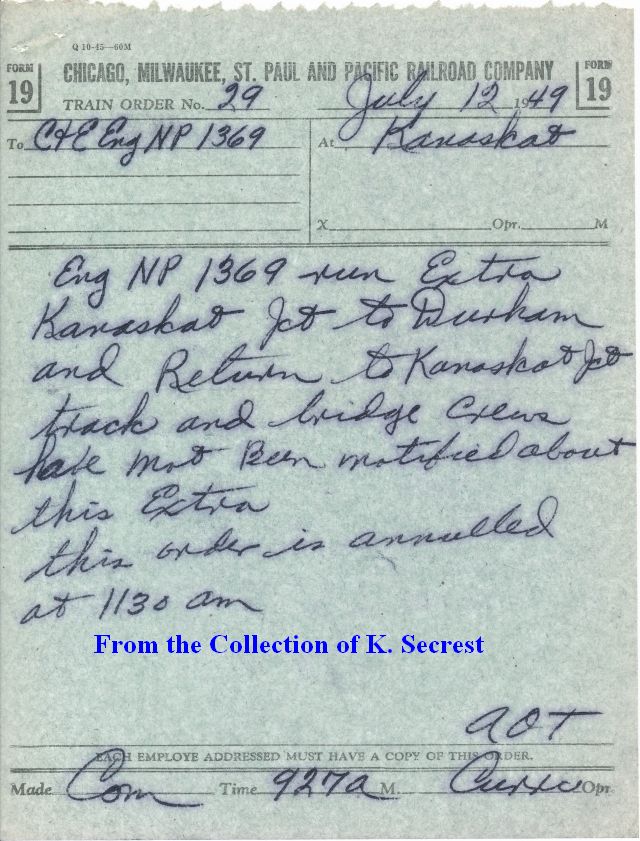 Q 10-45—60M
FORM 19
CHICAGO, MILWAUKEE, ST. PAUL AND PACIFIC RAILROAD COMPANY
FORM 19
TRAIN ORDER No. 29 July 12 1949
To C+E Eng NP 1369 At Kanaskat
X Opr. M
Eng NP 1369 run Extra
Kanaskat Jct to Durham
and Return to Kanaskat Jct
track and bridge crews
have not Been notified about
this Extra
this order is annulled
at 1130 am
From the Collection of K. Secrest
AOT
EACH EMPLOYE ADDRESSED MUST HAVE A COPY OF THIS ORDER.
Made Com Time 927a M. Opr.